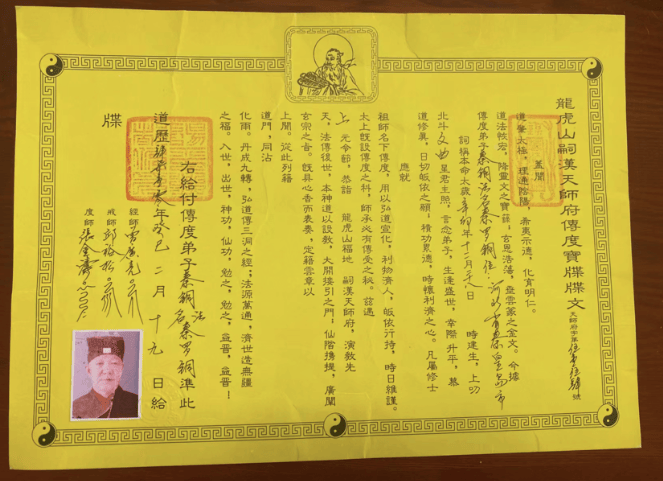 龍虎山嗣漢天師府傳度寶牒牒文
天師府字第 號
蓋聞
道肇太極，理通陰陽，希夷示德，化育明仁。
道法敕宏，隆靈文之寶籙；玄恩浩蕩，盡雲篆之金文。今據
傳度弟子秦銅法名秦罗銅住河北省
詞稱本命太歲辛卯年十二月十八日 時建生，上叩
北斗文曲星君主照，言念弟子，生逢盛世，幸際升平，慕
道修真，日切皈依之願，精功累德，時懷利濟之心。凡屬修士
應就
祖師名下傳度，用以弘道宣化，利物濟人，皈依行持，時日維謹。
太上既設傳度之科，師承必有傳受之秘。茲遇
上元令節，恭詣 龍虎山福地 嗣漢天師府，演教先
天，法傳後世，本神道以設教，大開接引之門；仙階擕提，廣闡
玄宗之音。既具心香而表奏，定籍雲章以
上聞。從此列籍
道門，同沾
化雨。丹成九轉，弘道傳三洞之經；法源萬通，濟世造無疆
之福。入世，出世，神功，仙功，勉之，勉之，益晉，益晉！
右給付傳度弟子秦銅法名秦罗銅準此
道歷 年癸巳 二月十九日給
經師
戒師邱裕松
度師張金濤
牒